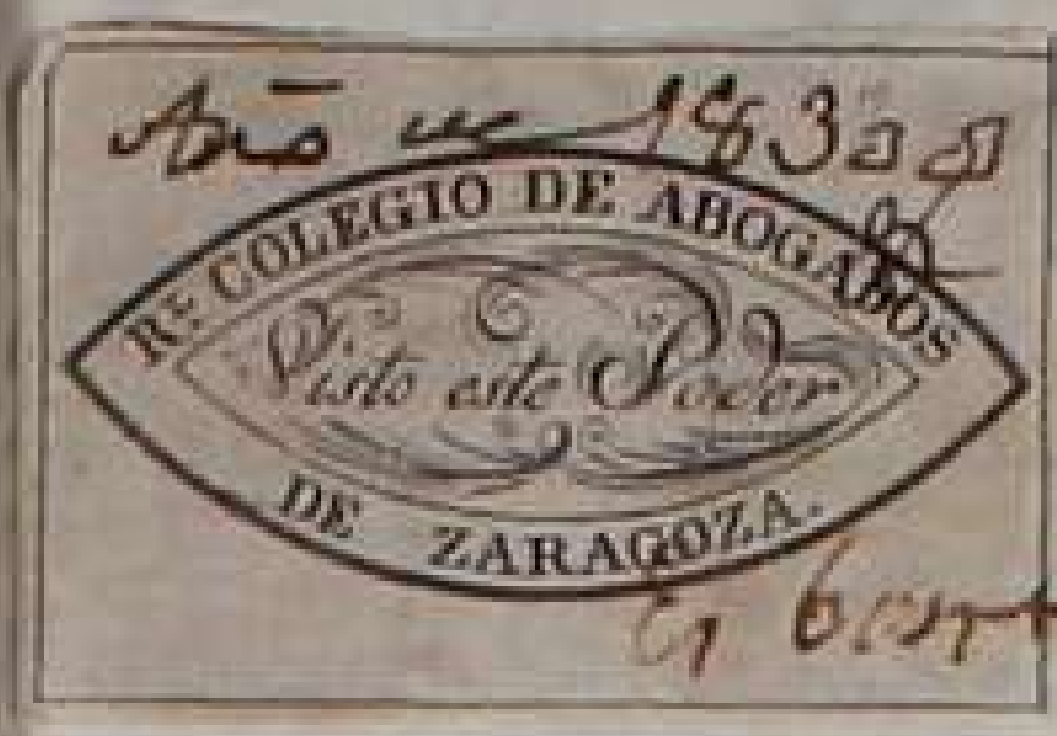 Año de 183
Rl. COLEGIO DE ABOGADOS
Visto este Poder
DE ZARAGOZA.